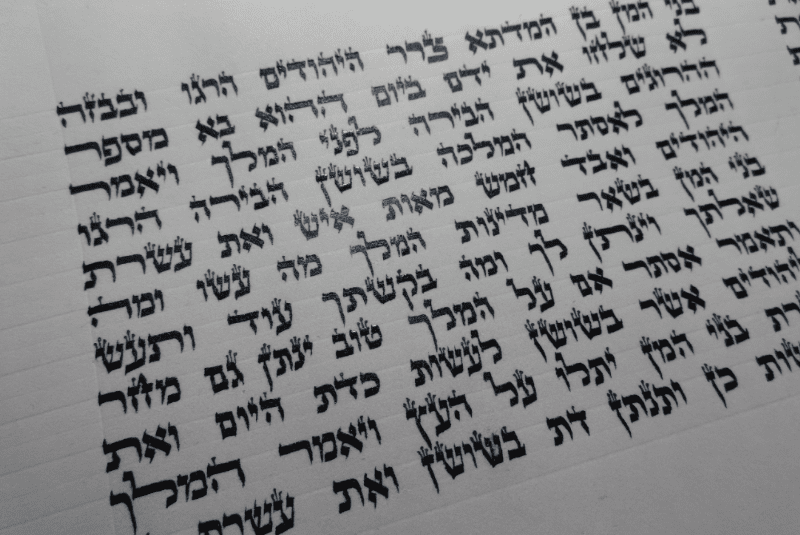 בני המן בן המדתא צרר היהודים הרגו ובבזה
לא שלחו את ידם ביום ההוא בא מספר
ההרוגים בשושן הבירה לפני המלך ויאמר
המלך לאסתר המלכה בשושן הבירה הרגו
היהודים ואבד חמש מאות איש ואת עשרת
בני המן בשאר מדינות המלך מה עשו ומה
שאלתך וינתן לך ומה בקשתך עוד ותעש
ותאמר אסתר אם על המלך טוב ינתן גם מחר
יהודים אשר בשושן לעשות כדת היום ואת
רת בני המן יתלו על העץ ויאמר המלך
שות כן ותנתן דת בשושן ואת עשרת